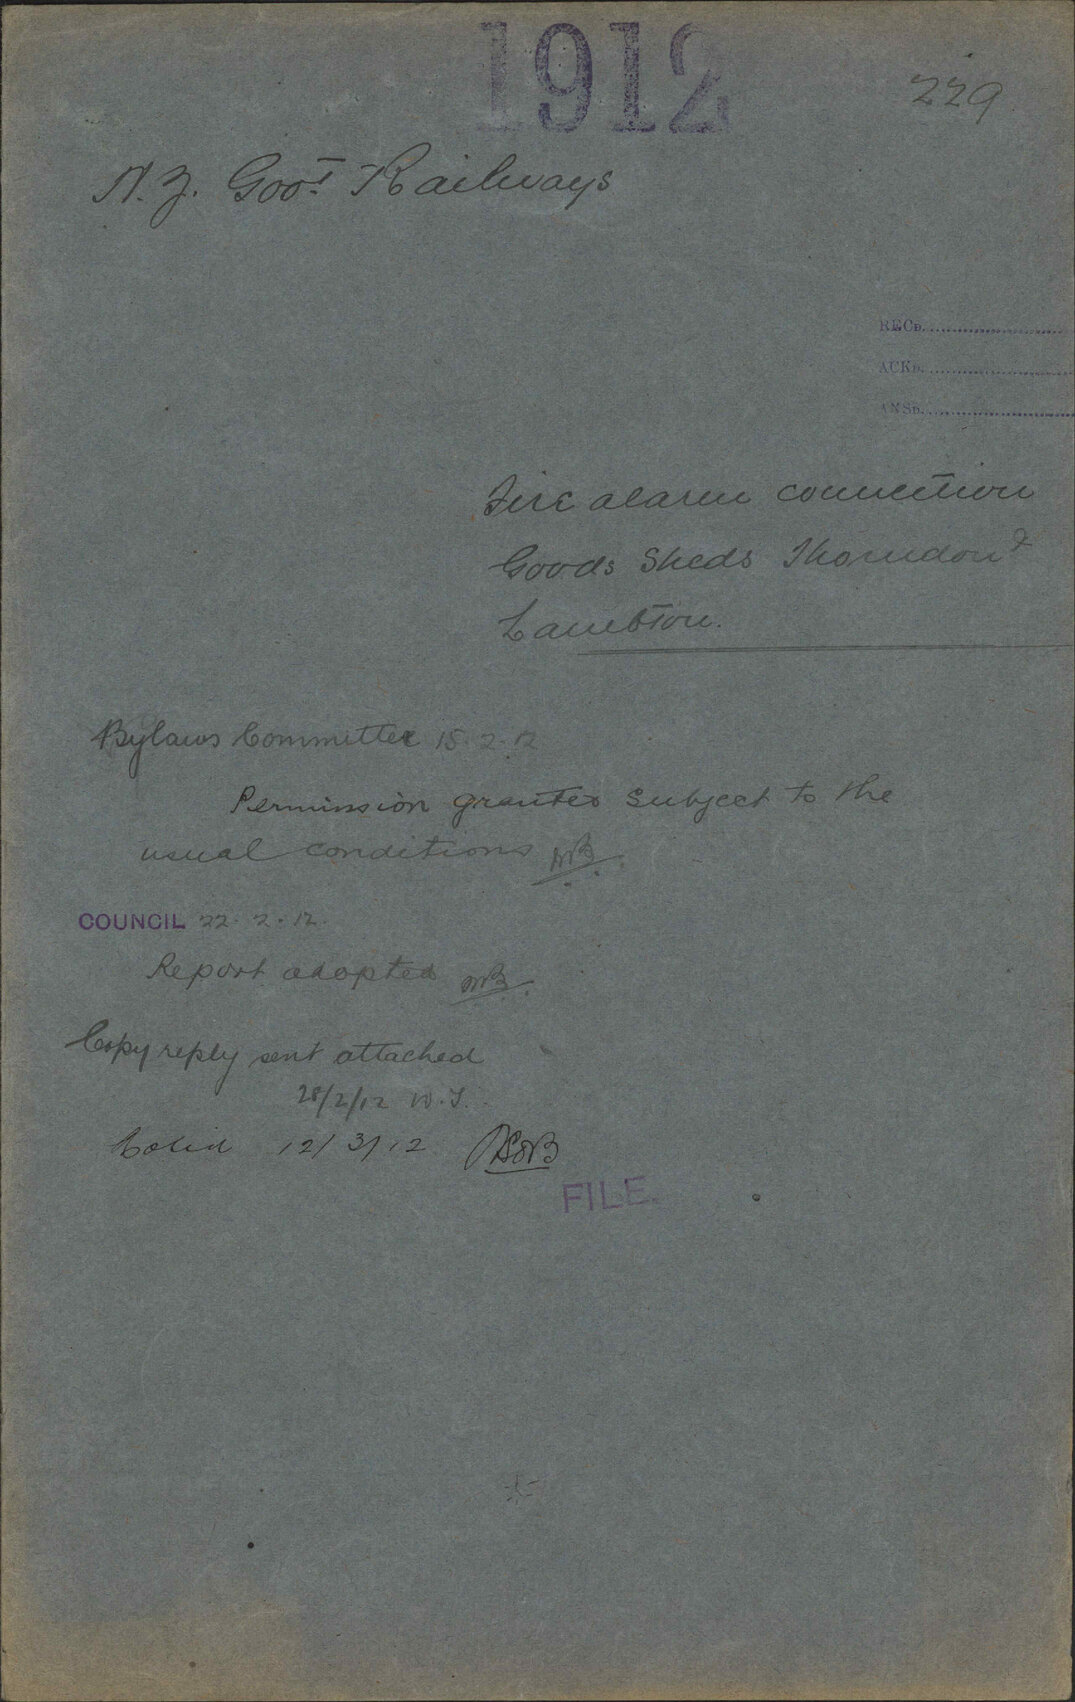 1912
229
N.Z. Govt Railways
RECD.
ACKD.
ANSD.
Fire alarm connection
Goods Sheds Thorndon &
Lambton.
Bylaws Committee 15.2.12
Permission granted subject to the
usual conditions
COUNCIL 22.2.12.
Report adopted
Copy reply sent attached
28/2/12 W.J.
12/3/12
FILE.